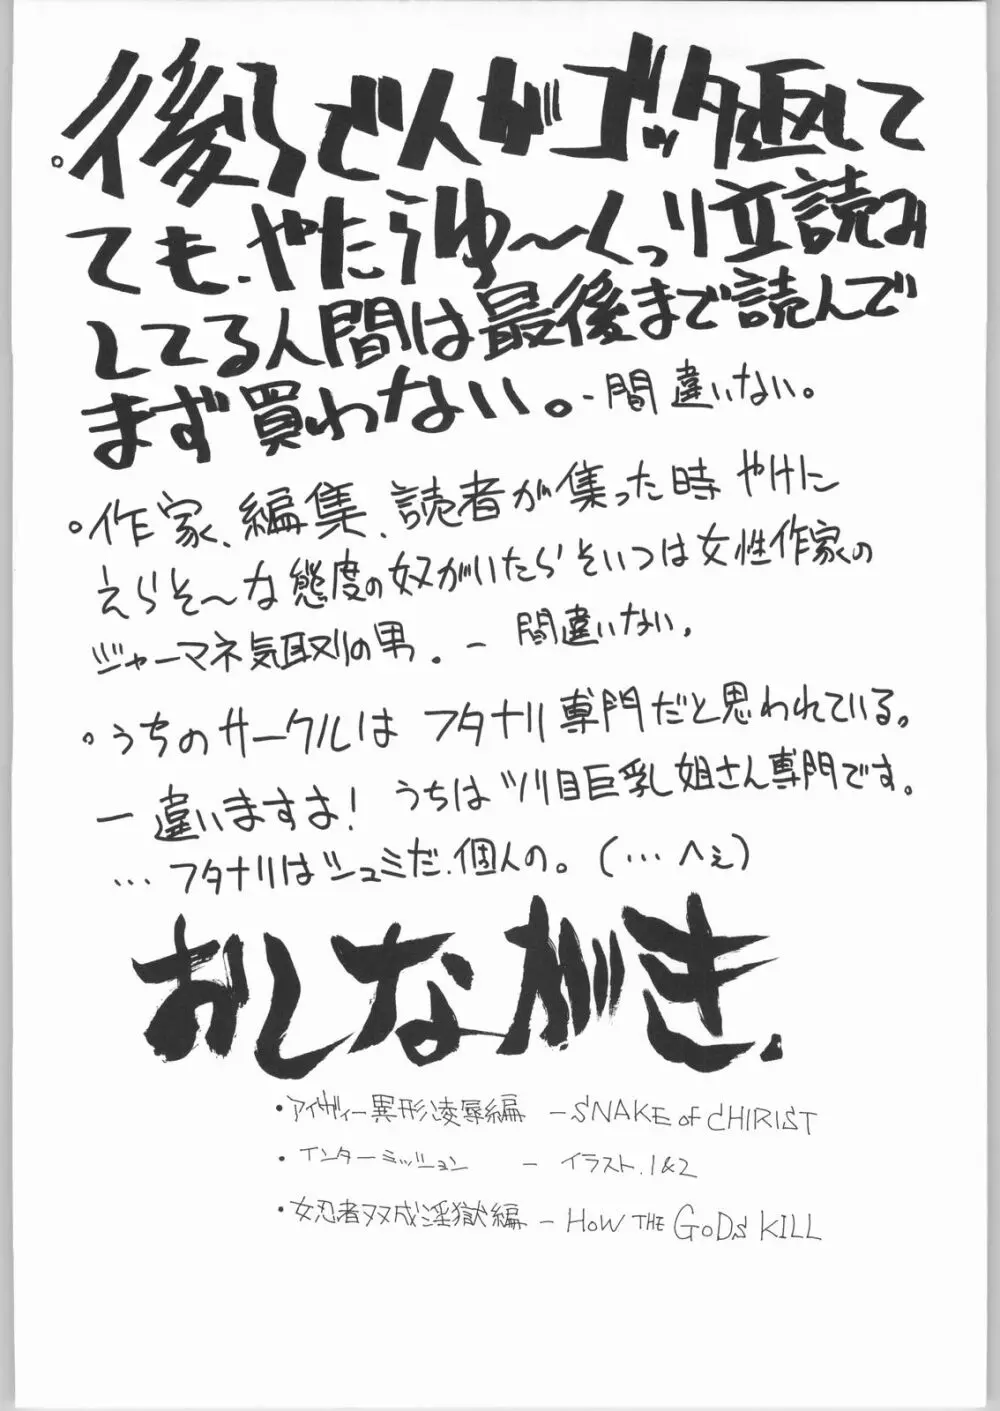 。後ろで人がゴッタ返して
ても、やたらゆ〜くっり立読み
してる人間は最後まで読んで
まず買わない。-間違いない。
。作家、編集、読者が集った時 やけに
えらそ〜な態度の奴がいたらそいつは女性作家の
ジャーマネ気取りの男。- 間違いない。
。うちのサークルは フタナリ専門だと思われている。
ー違いますよ! うちはツリ目巨乳姐さん専門です。
…フタナリはシュミだ、個人の。(…へぇ)
おしながき.
・アイヴィー異形凌辱編 - SNAKE of CHIRIST
・インターミッション - イラスト.1&2
・女忍者双成淫獄編 - HOW THE GODS KILL